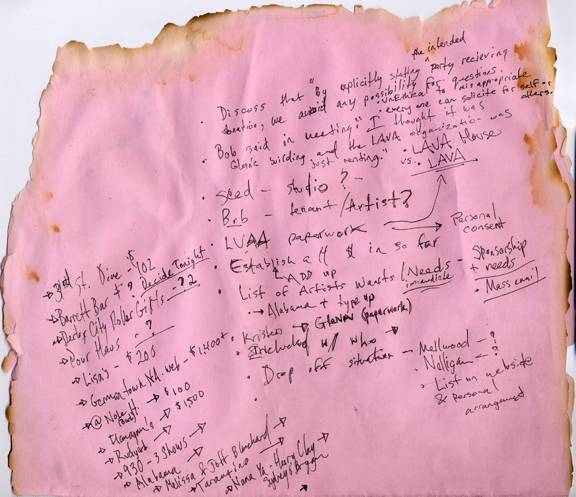 • Discuss that "By explicitly stating the intended party recieving
donation, we avoid any possibility for questions.
• Unethical to misappropriate
• everyone can solicite for self or others.
• Bob said in meeting "I thought it was
Glenn's building and the LAVA organization was
just renting." • LAVA House
vs. LAVA
• Seed – studio?
• Bob – tenant/Artist?
• LVAA paperwork → Personal
consent
• Establish all $ in so far
↳ Add up
• List of Artists Wants/Needs
immediate
Sponsorship
+ needs
Mass email
→ Alabama + type up
• Kristen → Glenn (paperwork)
• Included w/ who
• Drop off situation – Mellwood – ?
• Nolligan – ?
• List on website
& personal
arrangement
→ 3rd St. Dive $ 402
→ Barrett Bar + ? Decide Tonight
→ Derby City Roller Girls – ??
→ Pour Haus – ?
→ Lisa's – $200
→ Germantown – $1,400+
→ @ Nobe → $100
→ Flanagan's → $1,500
→ Rudyard →
→ 930 – 3 Shows →
→ Alabama →
→ Melissa & Jeff Blanchard →
→ Tarantino →
→ Nona